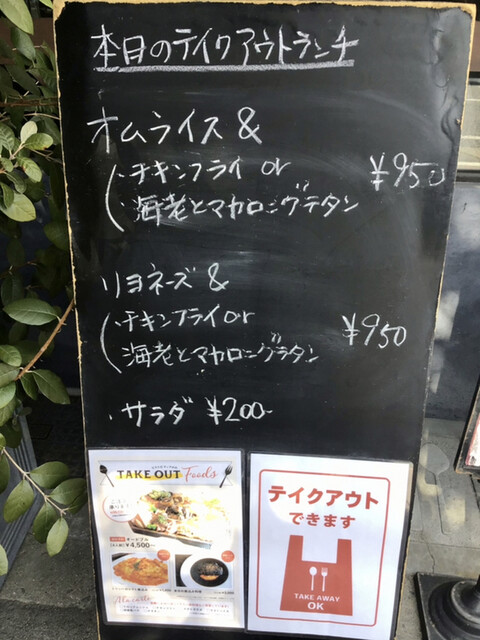 本日のテイクアウトランチ
オムライス &
・チキンフライ or ¥950
・海老とマカロニグラタン
リヨネーズ &
・チキンフライ or ¥950
・海老とマカロニグラタン
・サラダ ¥200-
TAKE OUT Foods
オードブル
¥4,500
テイクアウト
できます
TAKE AWAY
OK